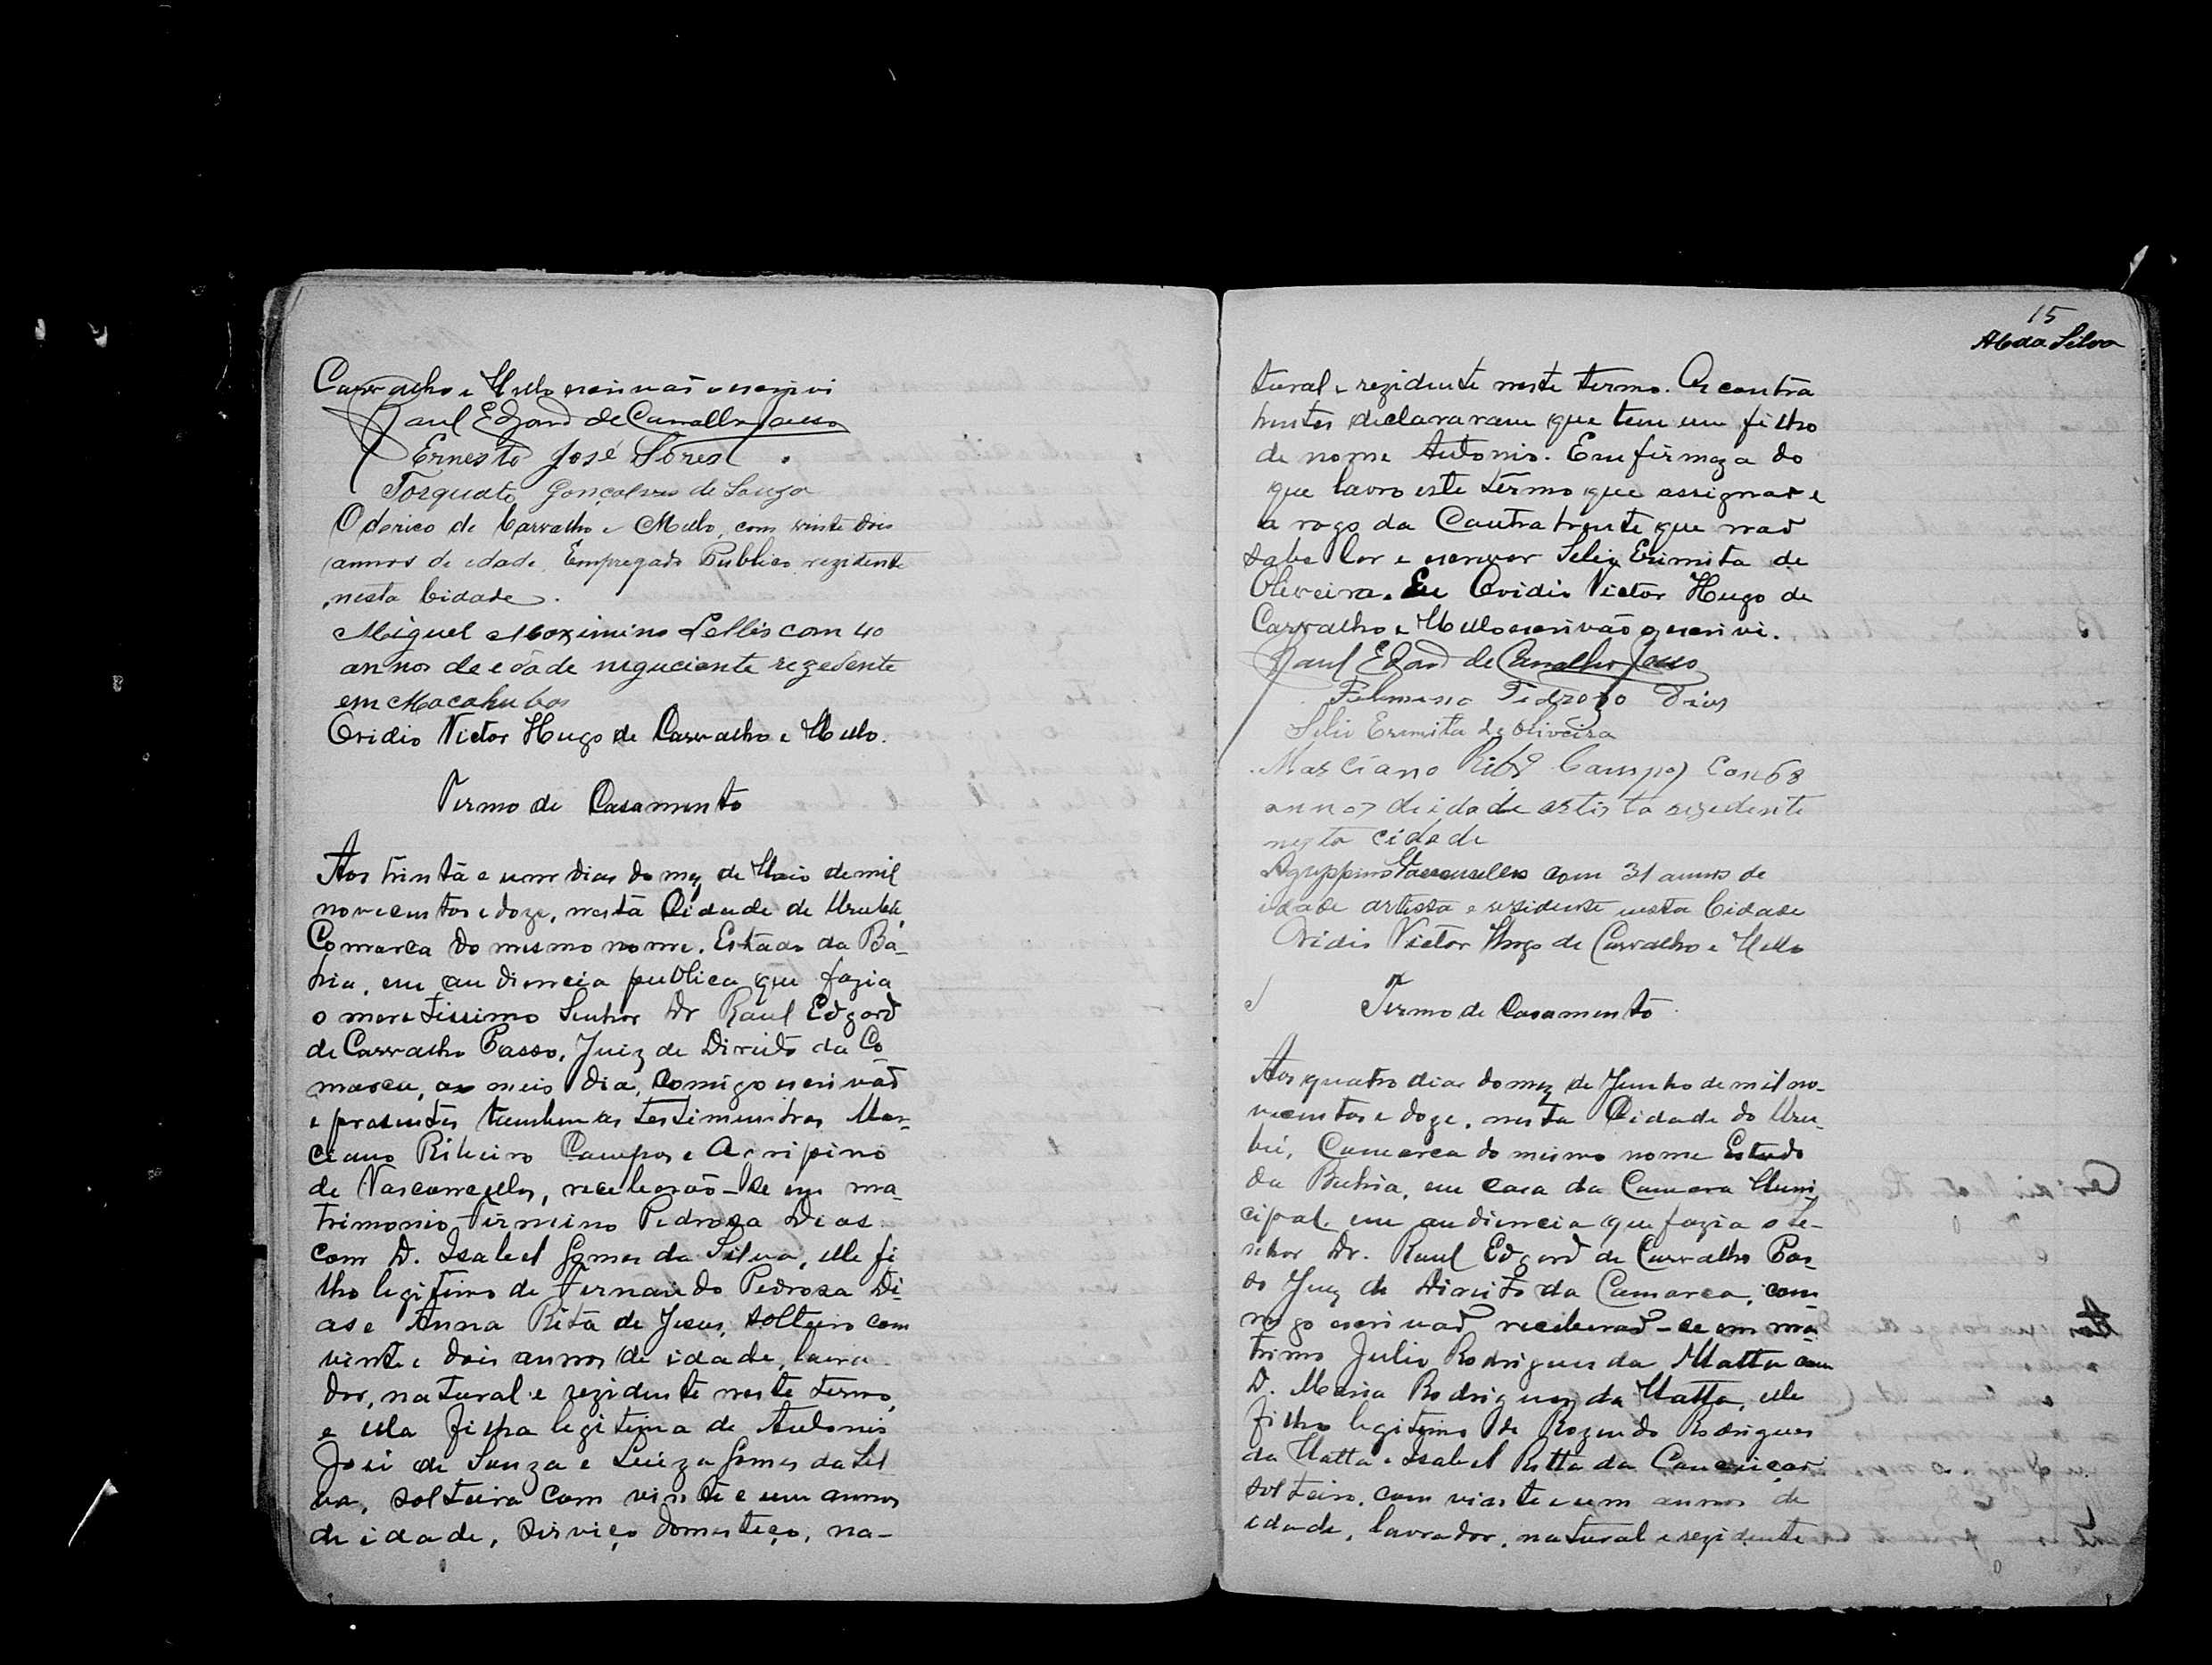 Carvalho e Mello escrivaõ o escrevi
Raul Edgard de Carvalho Passo
Ernesto José Sores
Torquato Gonçalves de Souza
Oderico de Carvalho e Mello, com vinte dois
annos de edade, Empregado Publico rezidente
nesta Cidade.
Miguel Maximino Lellis com 40
annos de edade neguciente rezedente
em Macahubas
Ovidio Victor Hugo de Carvalho e Mello.
Termo de Casamento
Aos trinta e um dias do mez de Maio de mil
novecentos e doze, nesta Cidade de Urubú,
Comarca do mesmo nome, Estado da Ba-
hia, em audiencia publica que fazia
o meretissimo Senhor Dr Raul Edgard
de Carvalho Passo, Juiz de Direito da Co
marca, ao meio dia, comigo escrivaõ
e presentes tambem as testimunhas Mar-
ciano Ribeiro Campos e Agripino
de Vasconcellos, receberaõ-se em ma-
trimonio Firmino Pedroza Dias
com D. Isabel Gomes da Silva, elle fi
lho legitimo de Fernando Pedroza Di-
as e Anna Rita de Jesus, solteiro com
vinte e dois annos de idade, lavra-
dor, natural e rezidente neste termo,
e ella filha legitima de Antonio
José de Souza e Luiza Gomes da Sil
va, solteira com vinte e um annos
de idade, serviço domestiço, na-
15
Ab da Silva
tural e rezidente neste termo. Os contra
hentes declararam que tem um filho
de nome Antonio. Em firmeza do
que lavro este termo que assignaõ e
a rogo da Contrahente que naõ
sabe ler e escrever Selio Erimita de
Oliveira. Eu Ovidio Victor Hugo de
Carvalho e Mello escrivão o escrevi.
Raul Edgard de Carvalho Passo
Pedrozo Dias
Selio Eremita de Oliveira
Marciano Ribr.º Campos Con 68
annos de idade artista rezedente
nesta cidade
Agrippino Vasconcellos com 31 annos de
idade artista e residente nesta Cidade
Ovidio Victor Hugo de Carvalho e Mello
Termo de Casamento
Aos quatro dias do mez de Junho de mil no-
vecentos e doze, nesta Cidade do Uru-
bú, Comarca do mesmo nome Estado
da Bahia, em casa da Camara Muni
cipal em audiencia que fazia o Se-
nhor Dr. Raul Edgard de Carvalho Pas-
so Juiz de Direito da Comarca, com
migo escrivaõ receberaõ-se em ma-
trimo Julio Rodrigues da Matta com
D. Maria Rodrigues da Matta, elle
filho legitimo de Rozendo Rodrigues
da Matta e Isabel Ritta da Conceiçaõ
solteiro, com vinte e um annos de
idade, lavrador, natural e rezidente